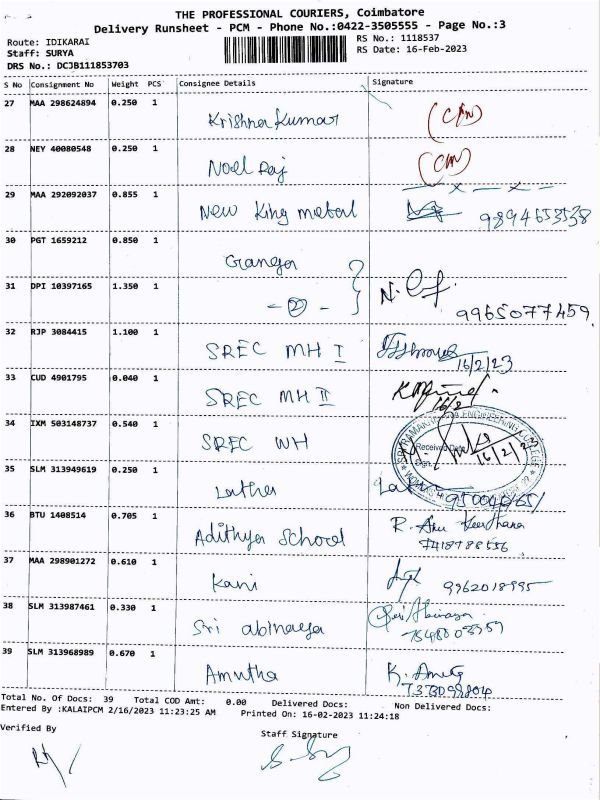 THE PROFESSIONAL COURIERS, Coimbatore
Delivery Runsheet - PCM - Phone No.:0422-3505555 - Page No.:3
Route: IDIKARAI
RS No.: 1118537
Staff: SURYA
RS Date: 16-Feb-2023
DRS No.: DCJB111853703
S No Consignment No Weight PCS Consignee Details Signature
27 MAA 298624894 0.250 1 Krishna Kumar
28 NEY 40080548 0.250 1 Noel Raj
29 MAA 292092037 0.855 1 New King metal 9894653538
30 PGT 1659212 0.850 1 Ganga
31 DPI 10397165 1.350 1 -②- 9965077459
32 RJP 3084415 1.100 1 SREC MH I 16/2/23
33 CUD 4901795 0.040 1 SREC MH II 16/2
34 IXM 503148737 0.540 1 SREC WH Received Date 16/2/23
35 SLM 313949619 0.250 1 Latha
36 BTU 1408514 0.705 1 Adithya School R. Anu Keerthana
7418788556
37 MAA 298901272 0.610 1 Kani 9962018995
38 SLM 313987461 0.330 1 Sri abinaya Sri Abinaya
39 SLM 313968989 0.670 1 Amutha
Total No. Of Docs: 39 Total COD Amt: 0.00 Delivered Docs: Non Delivered Docs:
Entered By :KALAIPCM 2/16/2023 11:23:25 AM Printed On: 16-02-2023 11:24:18
Verified By
Staff Signature